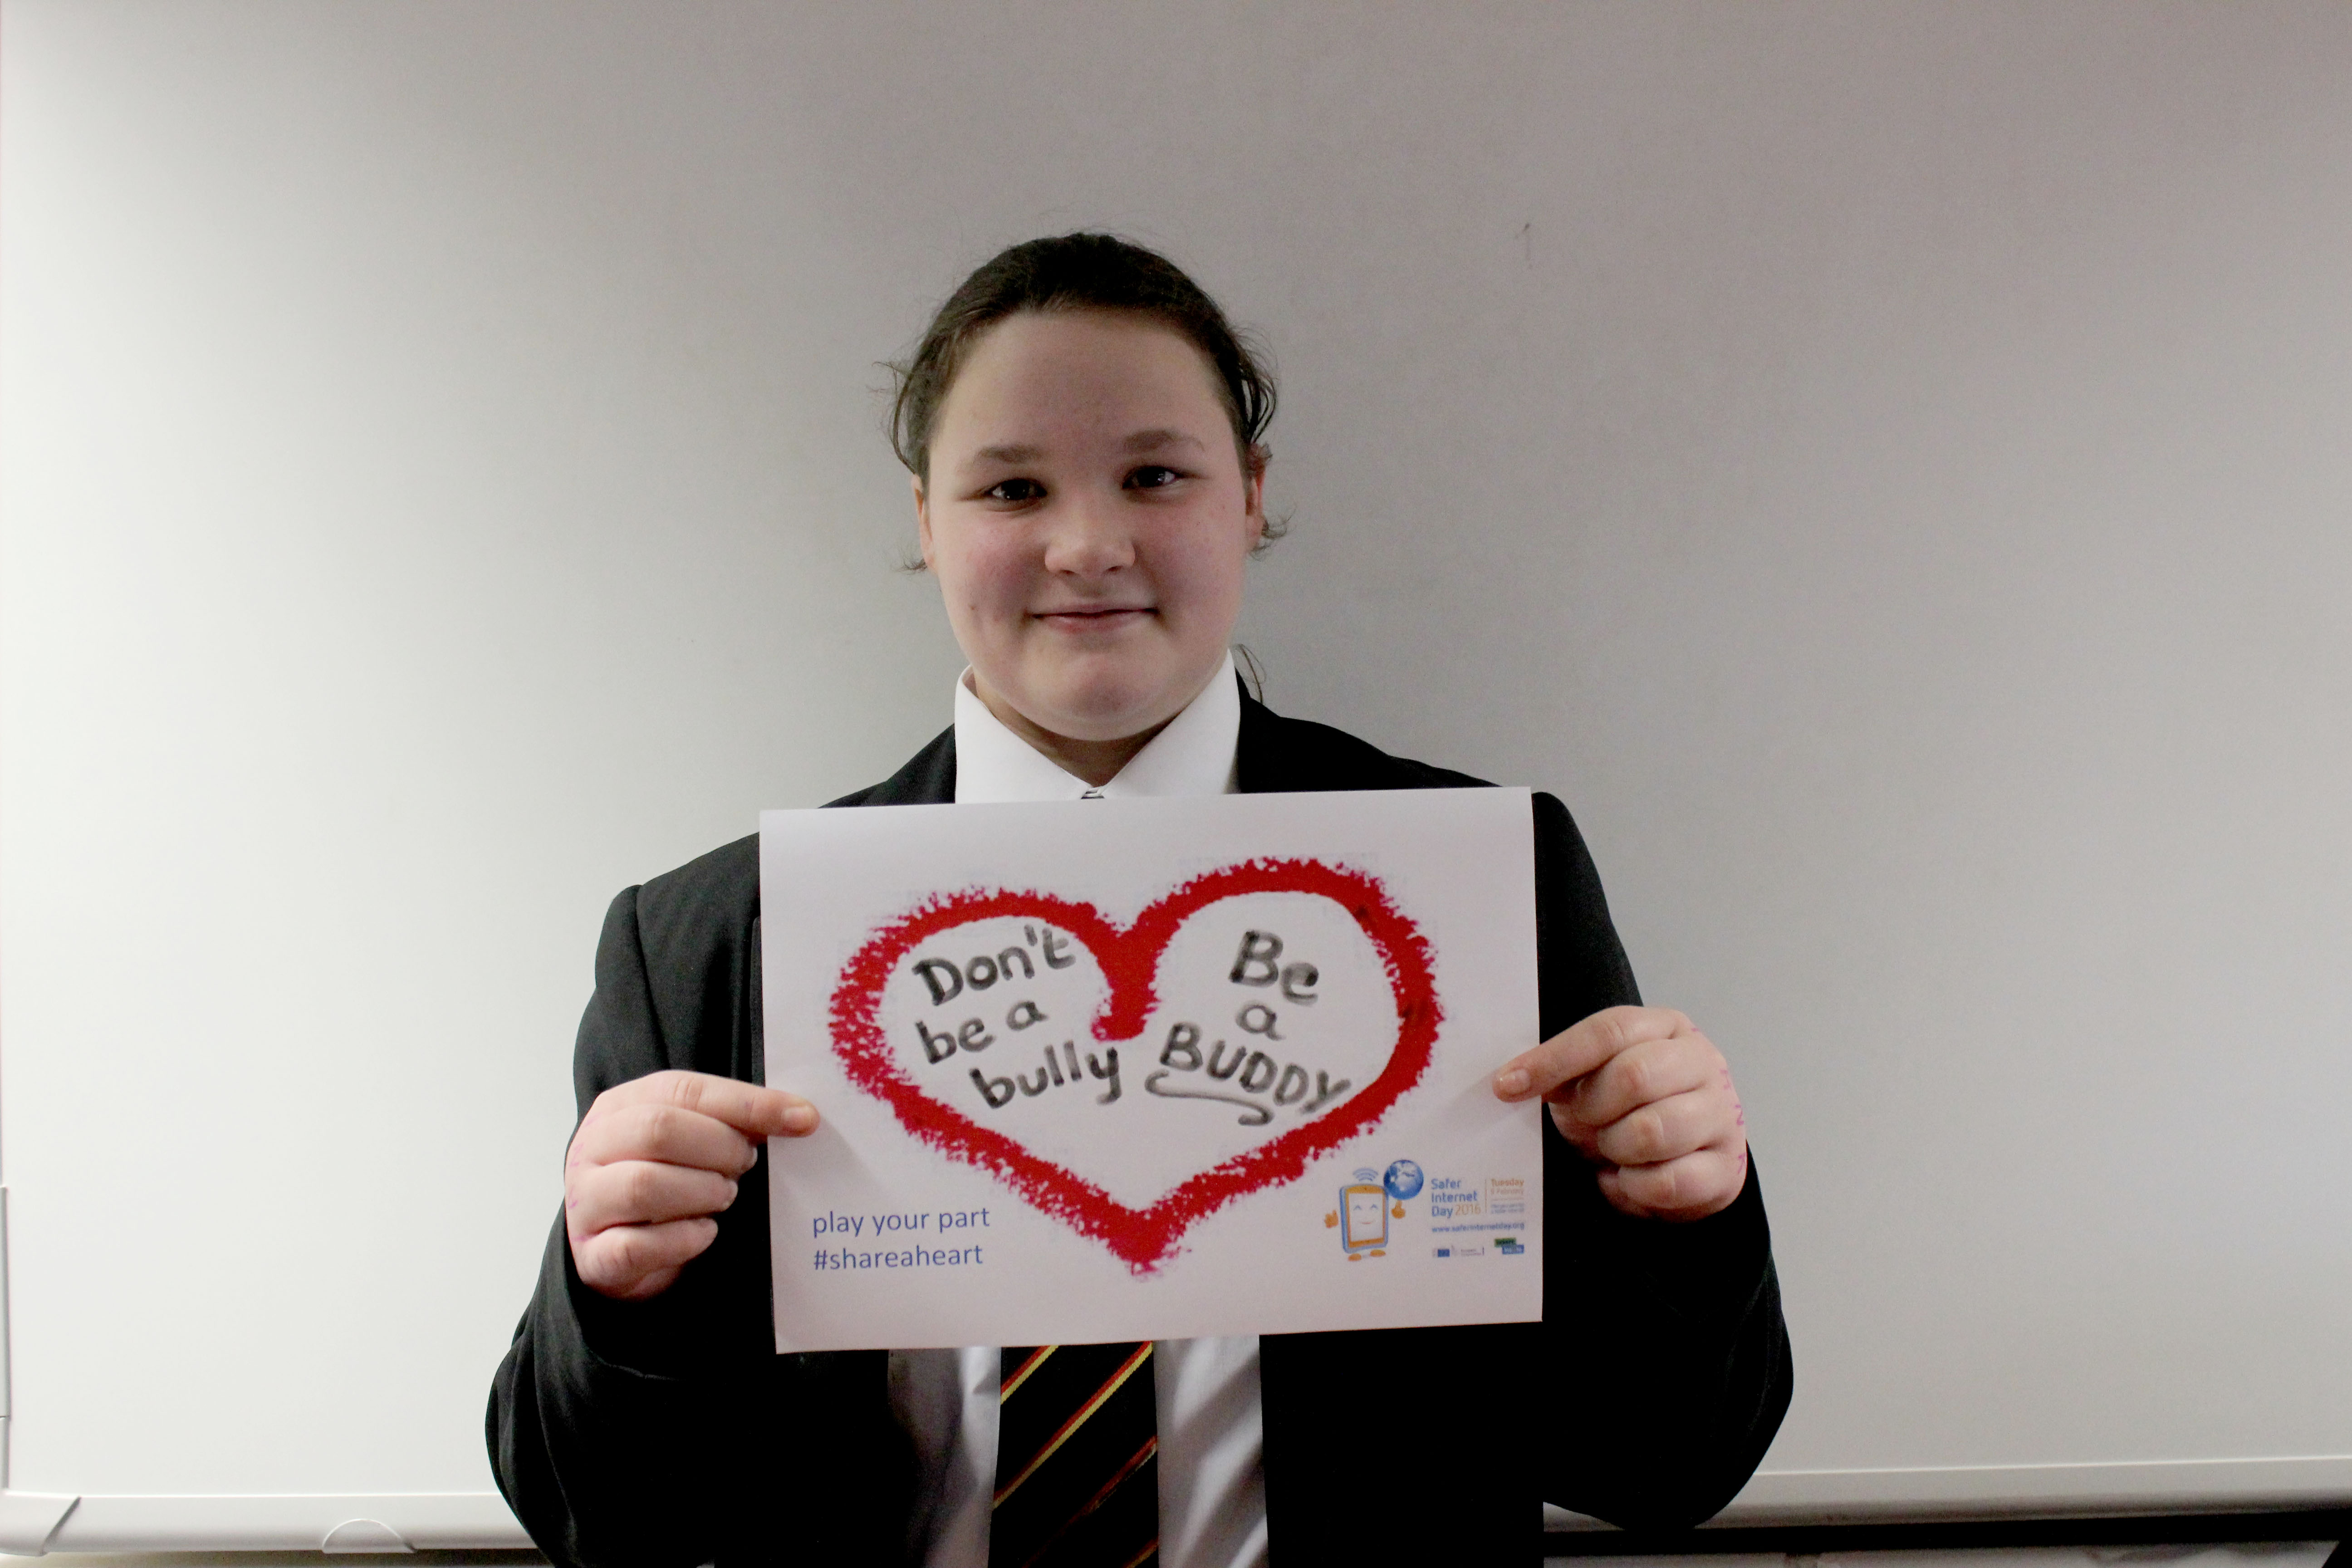 Don't
be a
bully
Be
a
BUDDY
play your part
#shareaheart
Safer
Internet
Day 2016
Tuesday
9 February
www.saferinternetday.org